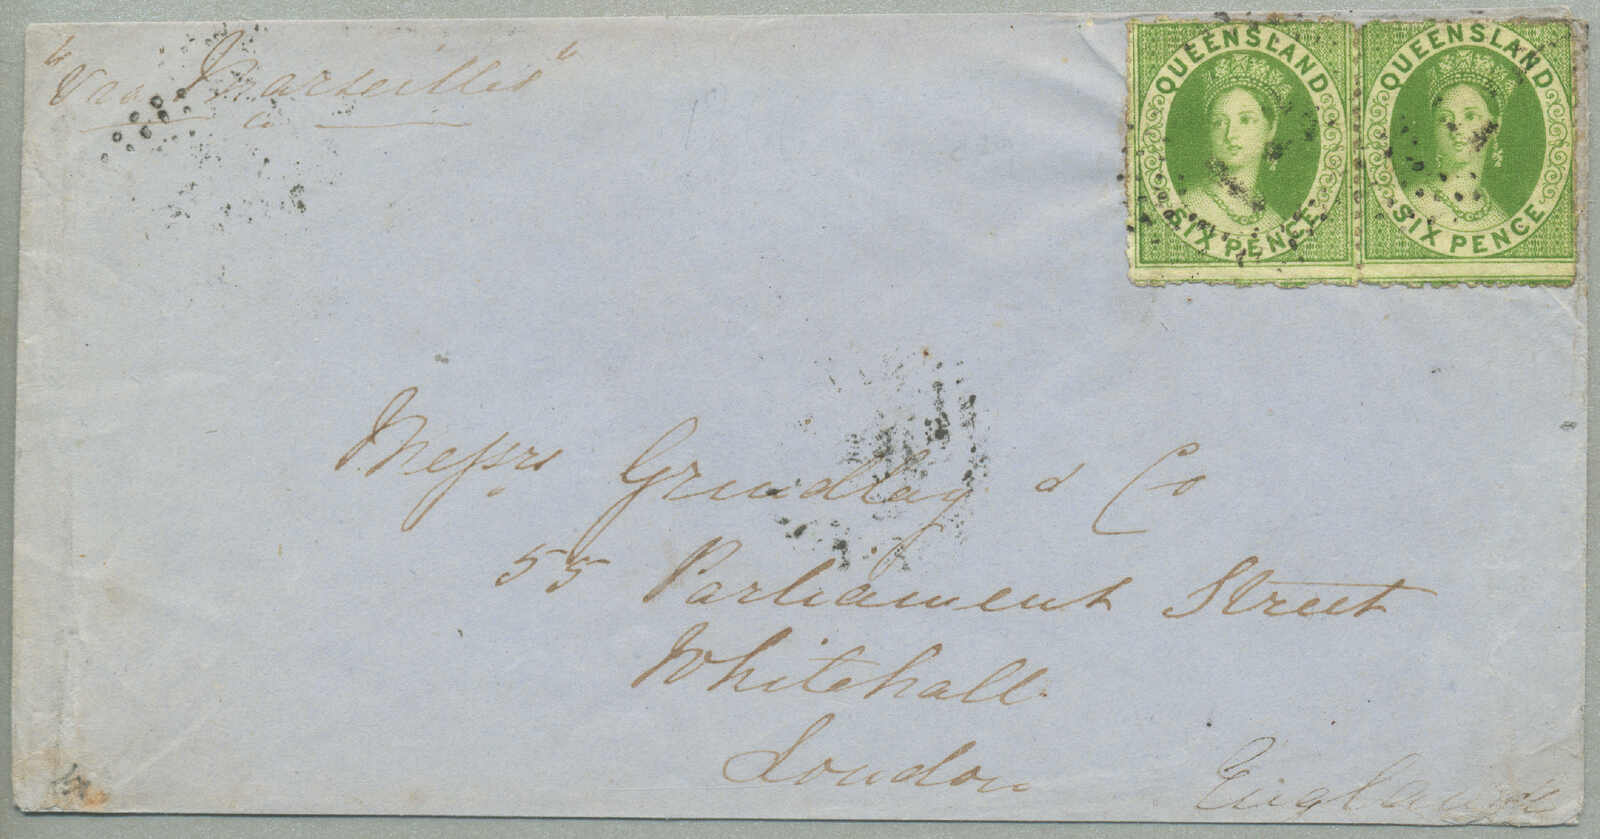 "Via Marseilles"
QUEENSLAND
SIX PENCE
QUEENSLAND
SIX PENCE
Messrs Grindlay & Co
55 Parliament Street
Whitehall
London
England